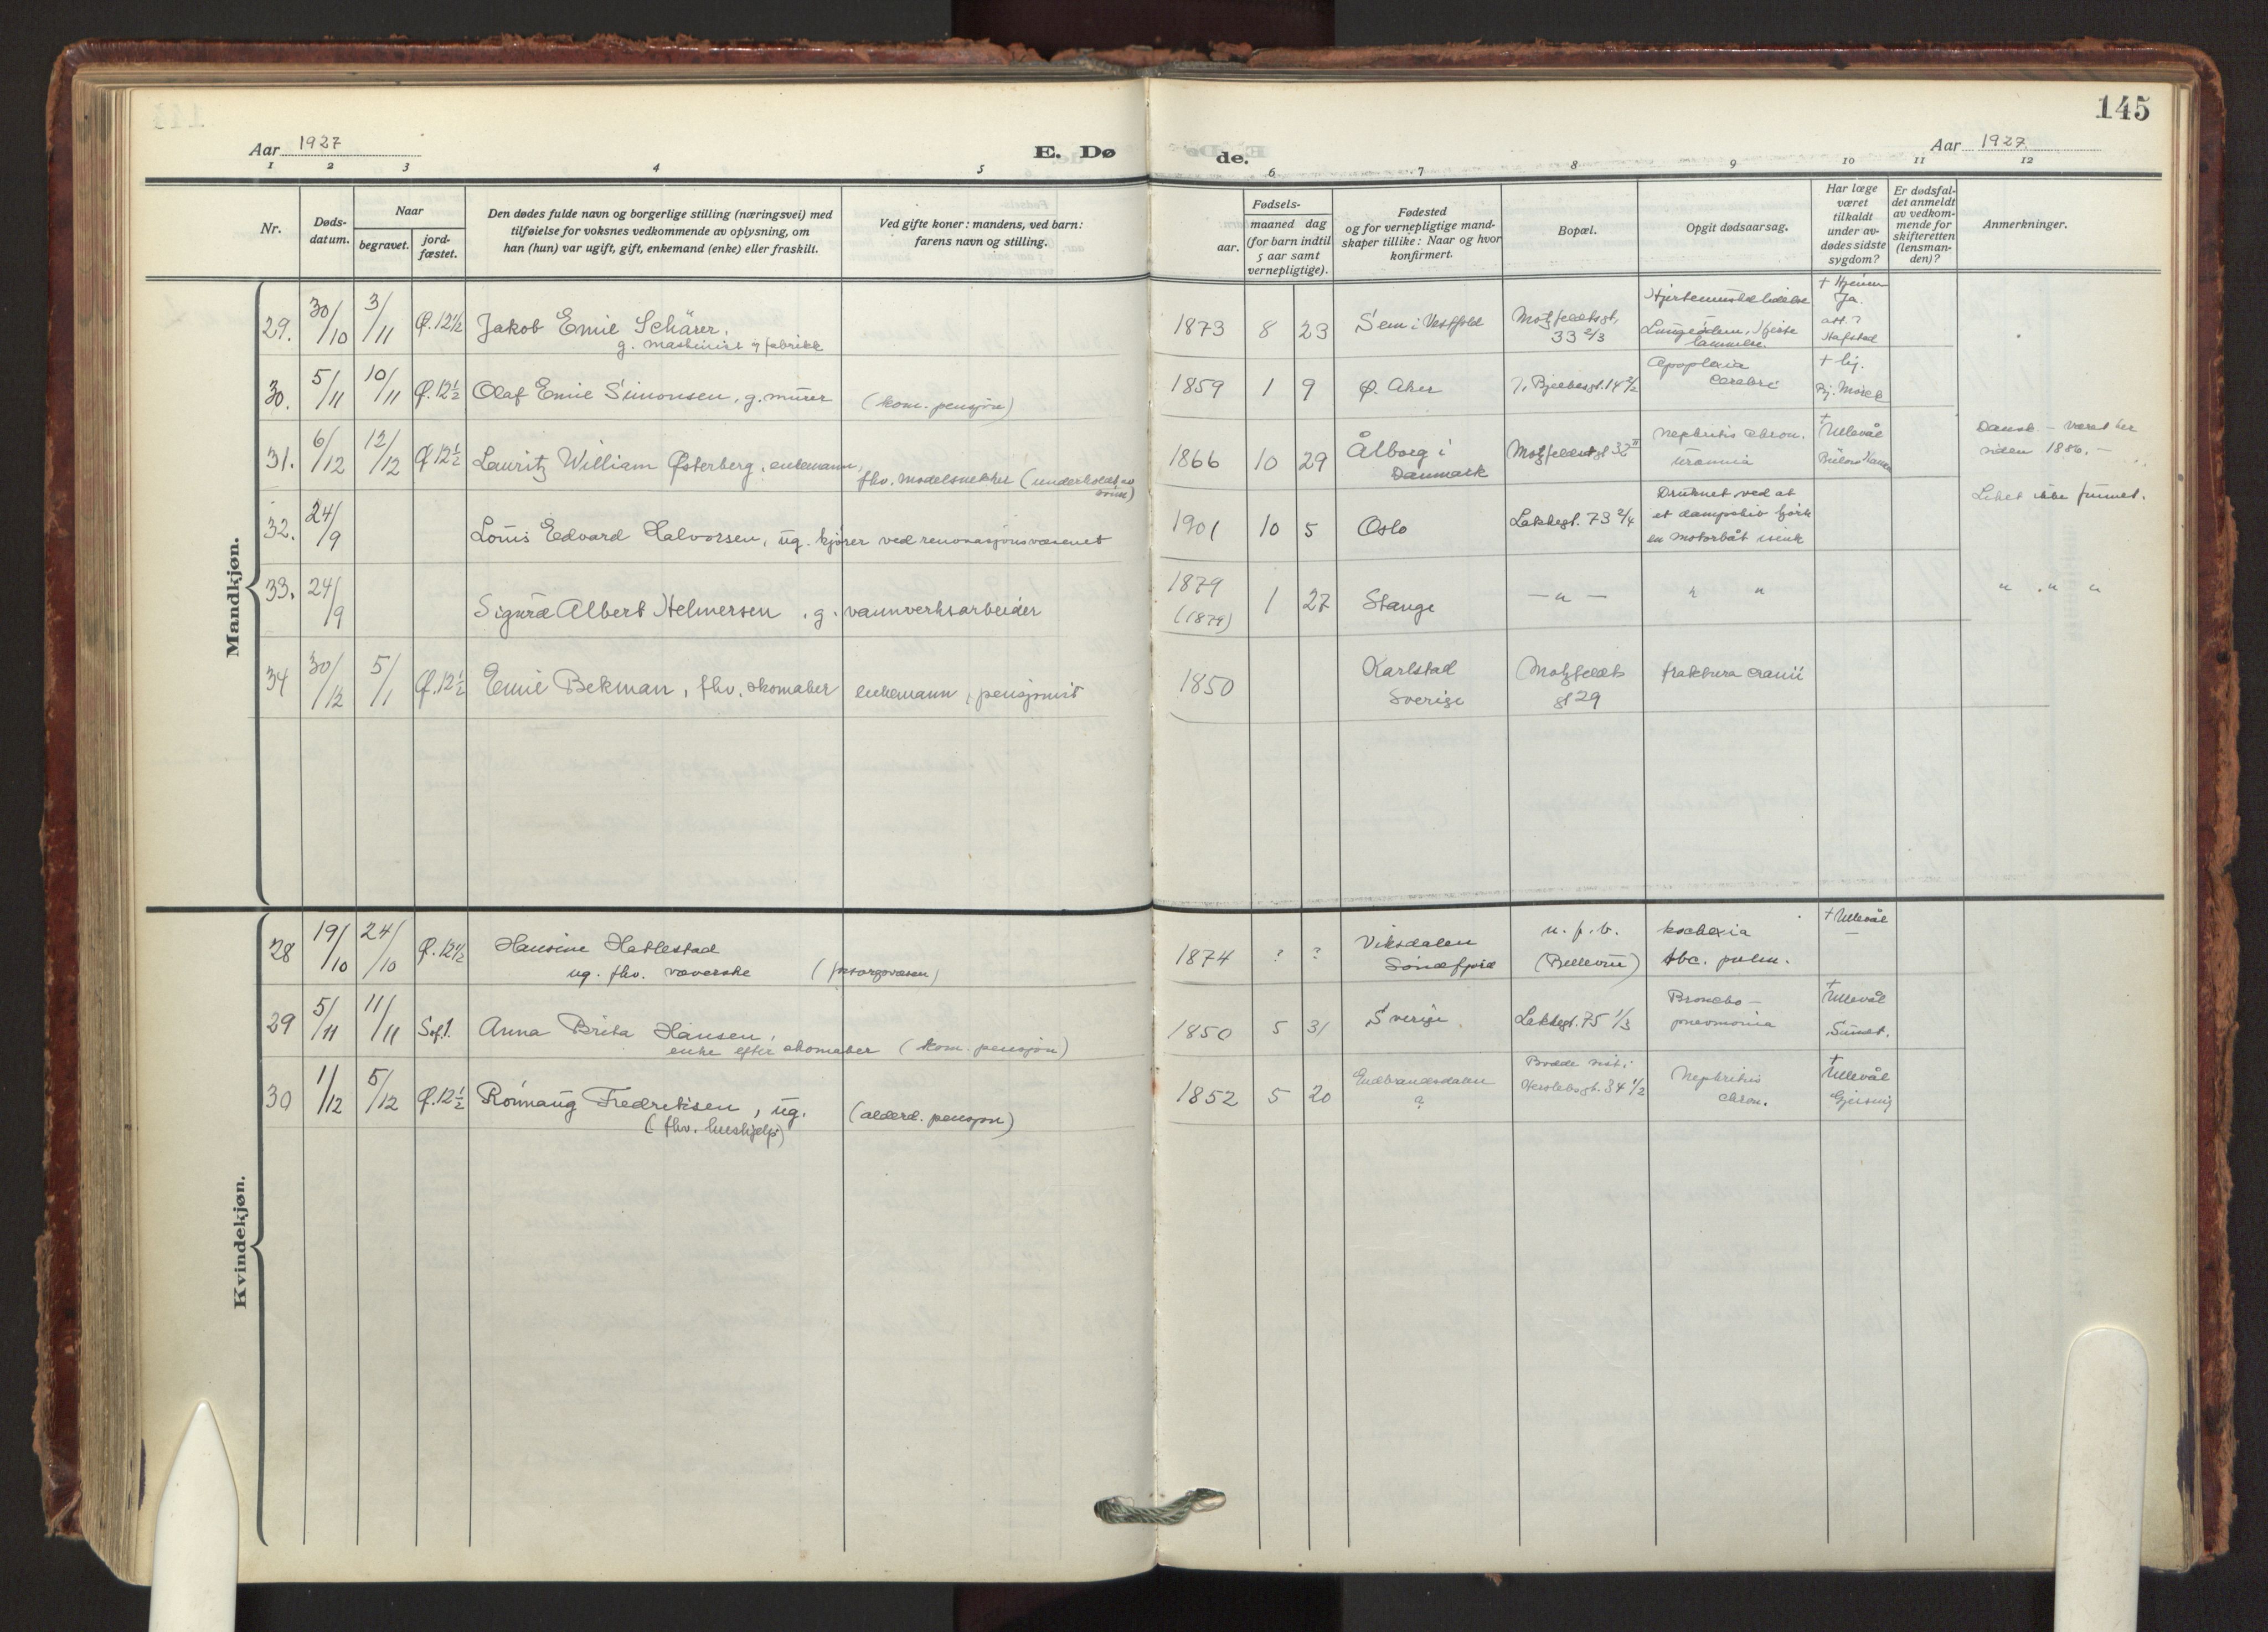 145
Aar 1927
E. Dø
de.
Aar 1927
1 2 3 4 5 6 7 8 9 10 11 12
Nr.
Døds-
datum.
Naar
begravet.
jord-
fæstet.
Den dødes fulde navn og borgerlige stilling (næringsvei) med
tilføielse for voksnes vedkommende av oplysning, om
han (hun) var ugift, gift, enkemand (enke) eller fraskilt.
Ved gifte koner: mandens, ved barn:
farens navn og stilling.
Fødsels-
aar.
maaned dag
(for barn indtil
5 aar samt
vernepligtige).
Fødested
og for vernepligtige mand-
skaper tillike: Naar og hvor
konfirmert.
Bopæl.
Opgit dødsaarsag.
Har læge
været
tilkaldt
under av-
dødes sidste
sygdom?
Er dødsfal-
det anmeldt
av vedkom-
mende for
skifteretten
(lensman-
den)?
Anmerkninger.
Mandkjøn.
29. 30/10 3/11 Ø. 12½ Jakob Emil Schärer,
g. maskinist i fabrikk
1873 8 23 Sem i Vestfold
Motzfeldtsgt.
33 2/3
Lungeödem, Hjerte
lammelse.
+ Hjemme
Ja.
30. 5/11 10/11 Ø. 12½ Olaf Emil Simonsen, g. murer (kom. pensjon)
1859 1 9 Ø. Aker
Apoplexia
cerebri
31. 6/12 12/12 Ø 12½ Lauritz William Østerberg, enkemann,
fhv. modelsnekker (underholdt av
sønn)
1866 10 29 Ålborg i
Danmark
Motzfeldtsgt 32 II
Nephritis chron.
uræmia
+ Ullevål
Dansk – været her
siden 1886. –
32. 24/9 Louis Edvard Halvorsen, ug. kjører ved renovasjonsvæsenet
1901 10 5 Oslo Lakkegt. 73 2/4
Druknet ved at
et dampskib kjørte
en motorbåt isenk
Liket ikke funnet.
33. 24/9 Sigurd Albert Helmersen, g. vannverksarbeider
1879
(1879)
1 27 Stange — " — " " " " "
34 30/12 5/1 Ø. 12½ Emil Bekman, fhv. skomaker enkemann, pensjonist
1850 Karlstad
Sverige
Motzfeldts
gt 29
fraktura cranii
Kvindekjøn.
28 19/10 24/10 Ø. 12½ Hansine Hatlestad
ug. fhv. væverske (forsorgsvæsen)
1874 ? ? Viksdalen
Søndfjord
u. f. b.
(Bellevue)
kachexia
tbc. pulm.
+ Ullevål
29 5/11 11/11 Sof. 1. Anna Brita Hansen,
enke efter skomaker (kom. pensjon)
1850 5 31 Sverige Lakkegt. 75 1/3
Broncho-
pneumonia
+ Ullevål
Sundt.
30 1/12 5/12 Ø. 12½ Rönnaug Fredriksen, ug. (alderd. pensjon)
(fhv. hushjelp)
1852 5 20 Gudbrandsdalen
?
Bodde sist i
Herslebsgt. 34 1/2
Nephritis
chron.
+ Ullevål